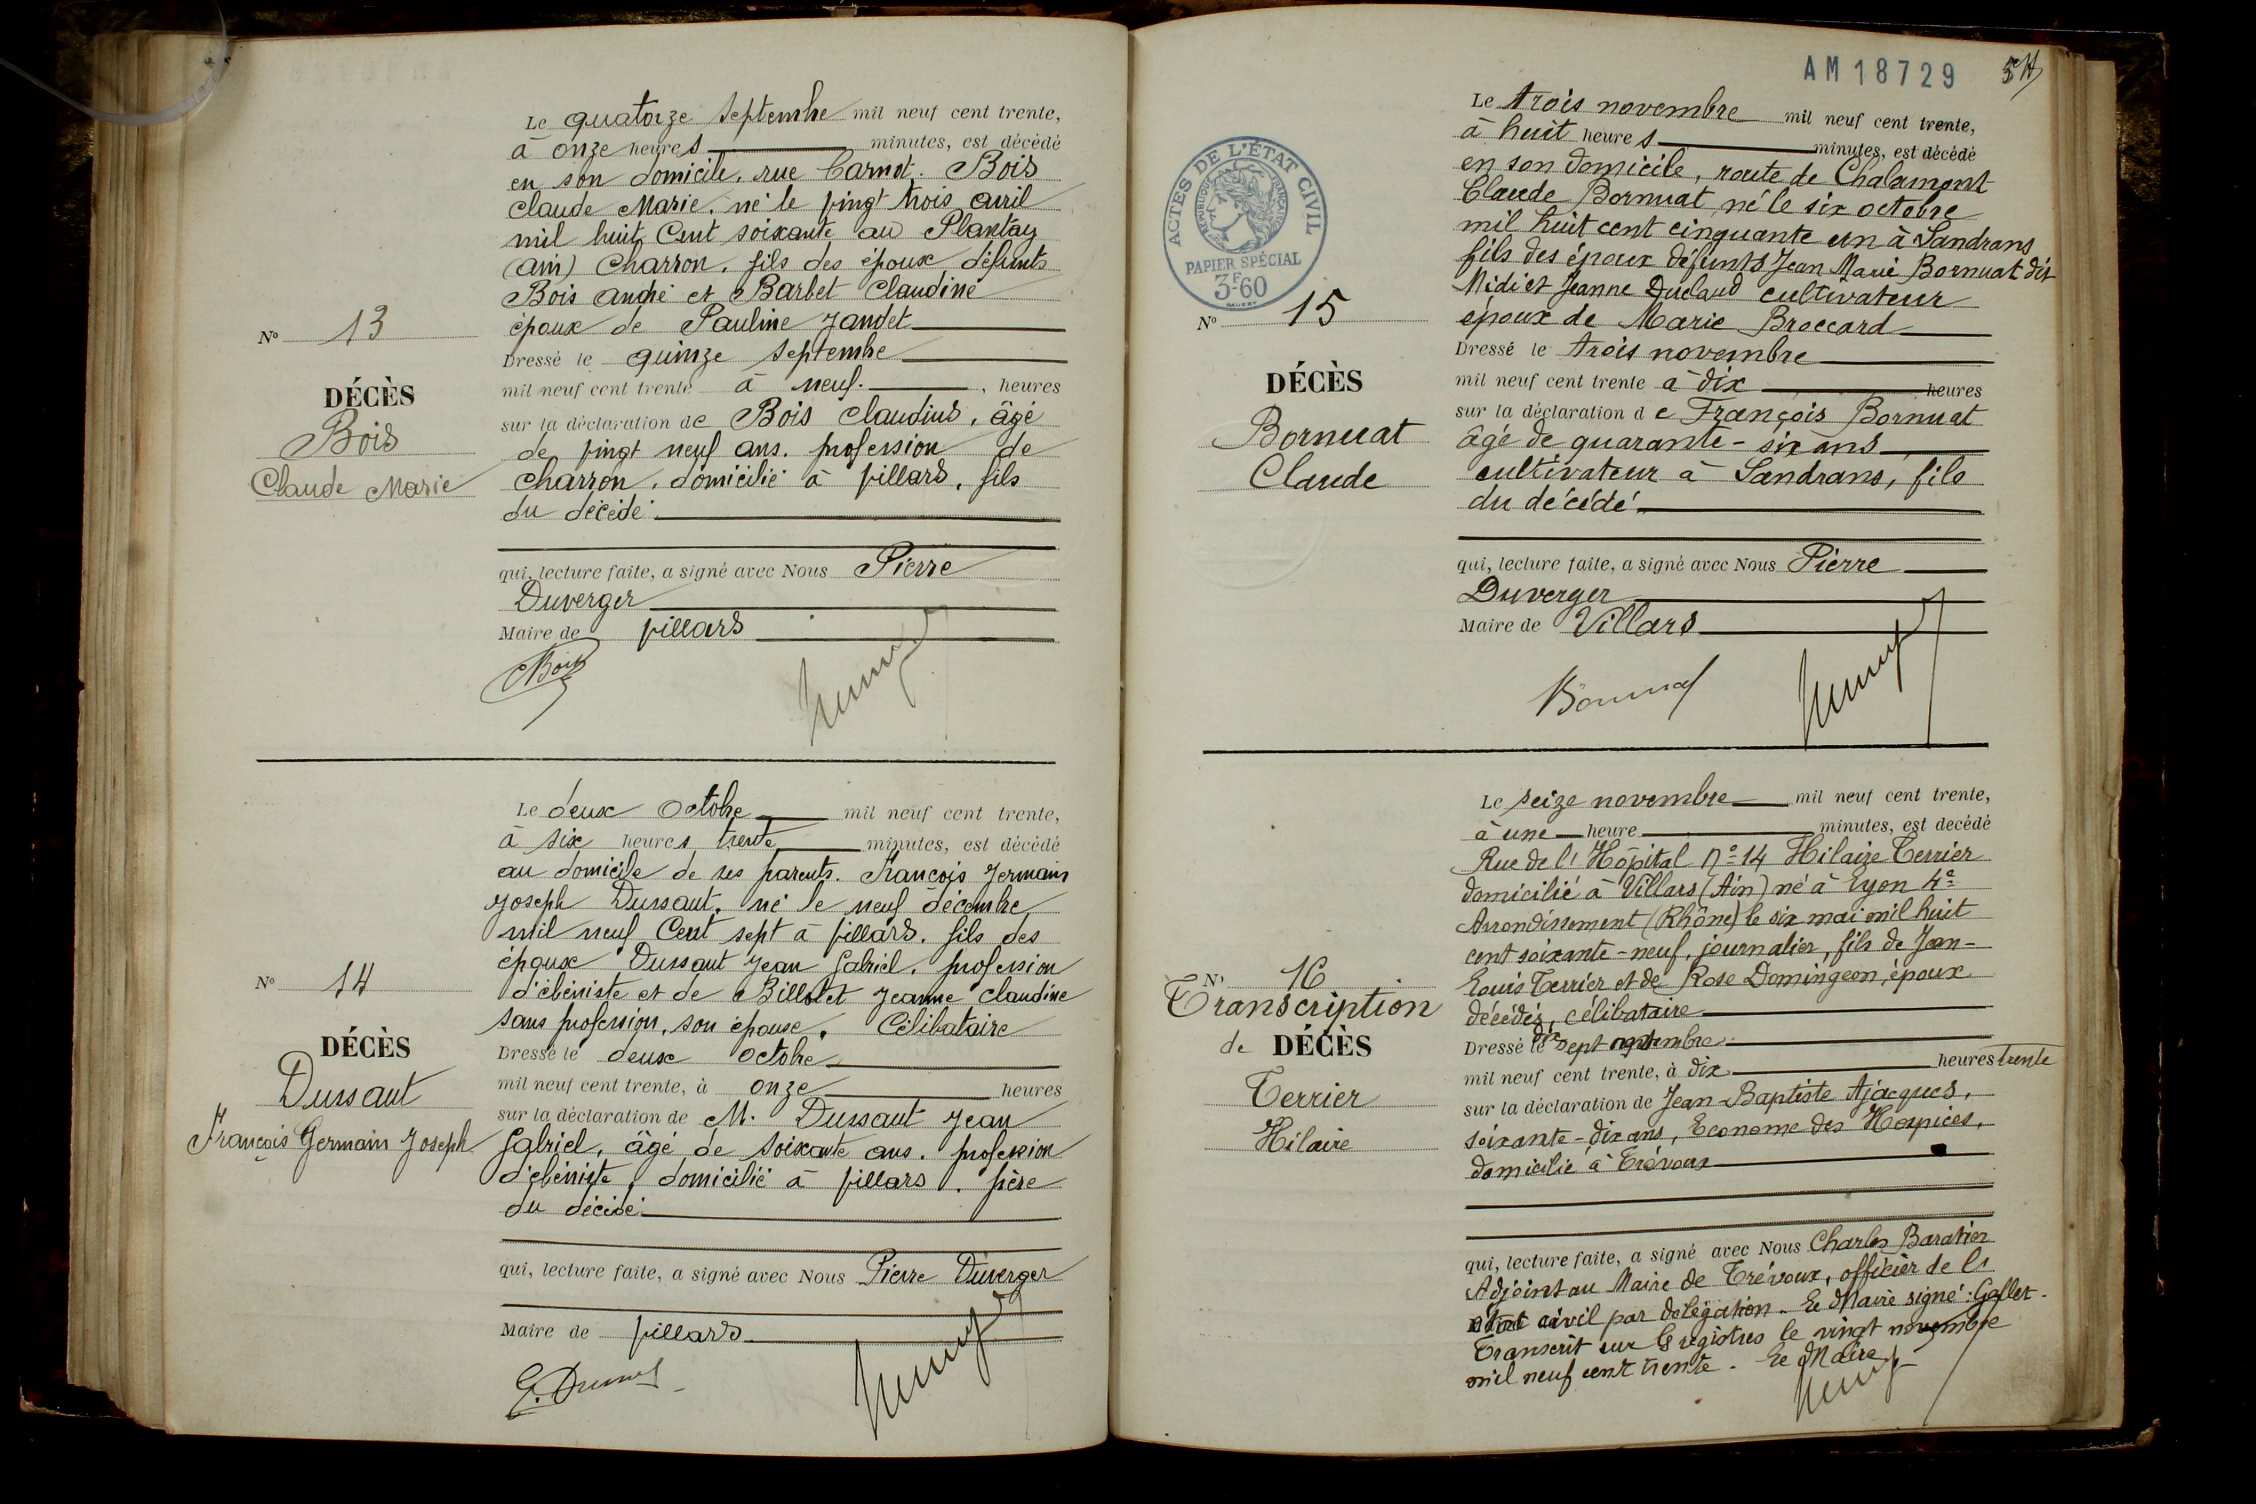 Le quatorze Septembre mil neuf cent trente,
à onze heures minutes, est décédé
en son domicile, rue Carnot. Bois
Claude Marie, né le vingt trois avril
mil huit Cent soixante au Plantay
(Ain) Charron, fils des époux défunts
Bois André et Barbet Claudine
époux de Pauline Jandet
Nº 13
DÉCÈS
Bois
Claude Marie
Dressé le quinze Septembre
mil neuf cent trente à neuf heures
sur la déclaration de Bois Claudius, âgé
de vingt neuf ans, profession de
charron, domicilié à Villars, fils
du décédé
qui, lecture faite, a signé avec Nous Pierre
Duverger
Maire de Villars
Bois
Le deux Octobre mil neuf cent trente,
à six heures trente minutes, est décédé
au domicile de ses parents. François Germain
Joseph Dussaut, né le neuf décembre
mil neuf Cent sept à Villars, fils des
époux Dussaut Jean Gabriel, profession
d'ébéniste et de Billolet Jeanne Claudine
sans profession, son épouse. Célibataire
Nº 14
DÉCÈS
Dussaut
François Germain Joseph
Dressé le deux Octobre
mil neuf cent trente, à onze heures
sur la déclaration de M. Dussaut Jean
Gabriel, âgé de soixante ans, profession
d'ébéniste, domicilié à Villars, père
du décédé
qui, lecture faite, a signé avec Nous Pierre Duverger
Maire de Villars
AM 18729
ACTES DE L'ÉTAT CIVIL
RÉPUBLIQUE FRANÇAISE
PAPIER SPÉCIAL
3F60
Le trois novembre mil neuf cent trente,
à huit heures minutes, est décédé
en son domicile, route de Chalamont
Claude Bornuat né le six octobre
mil huit cent cinquante un à Sandrans
fils des époux défunts Jean Marie Bornuat dit
Midi et Jeanne Duclaud cultivateur
époux de Marie Broccard
Nº 15
DÉCÈS
Bornuat
Claude
Dressé le trois novembre
mil neuf cent trente à dix heures
sur la déclaration de François Bornuat
âgé de quarante-six ans
cultivateur à Sandrans, fils
du décédé
qui, lecture faite, a signé avec Nous Pierre
Duverger
Maire de Villars
Bornuat
Le seize novembre mil neuf cent trente,
à une heure minutes, est decédé
Rue de l'Hôpital nº 14 Hilaire Terrier
domicilié à Villars (Ain) né à Lyon 4e
Arrondissement (Rhône) le six mai mil huit
cent soixante-neuf, journalier, fils de Jean-
Louis Terrier et de Rose Domingeon, époux
décédés, célibataire
Nº 16
Transcription
de DÉCÈS
Terrier
Hilaire
Dressé le dix sept novembre
mil neuf cent trente, à dix heures trente
sur la déclaration de Jean-Baptiste Ajacques,
soixante-dix ans, Econome des Hospices,
domicilié à Trévoux
qui, lecture faite, a signé avec Nous Charles Baratier
Adjoint au Maire de Trévoux, officier de l'
état civil par délégation. Le Maire signé: Gallet.
Transcrit sur les registres le vingt novembre
mil neuf cent trente. Le Maire,